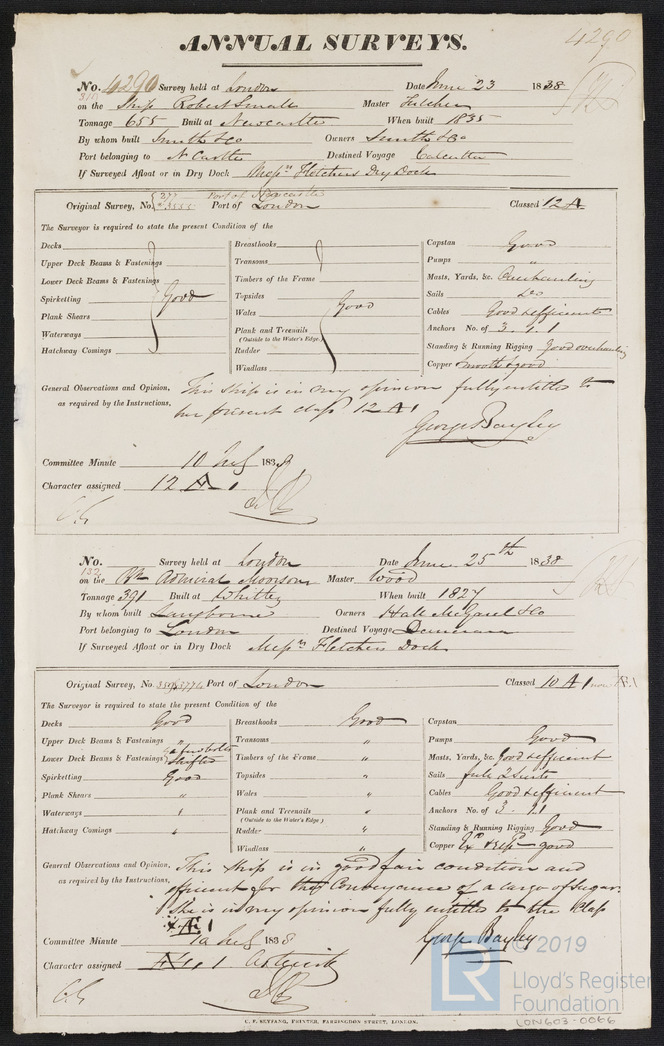 4290
ANNUAL SURVEYS.
No. 4290 Survey held at London Date June 23 1838
on the Ship Robert Small Master Fulcher
Tonnage 655 Built at Newcastle When built 1835
By whom built Smith & Co Owners Smith & Co
Port belonging to N Castle Destined Voyage Calcutta
If Surveyed Afloat or in Dry Dock Messrs Fletchers Dry Dock
Port of Newcastle
Original Survey, No. 277 Port of London Classed 12 A
The Surveyor is required to state the present Condition of the
Decks Breasthooks Capstan Good
Upper Deck Beams & Fastenings Transoms Pumps "
Lower Deck Beams & Fastenings Timbers of the Frame Masts, Yards, &c. Overhauling
Spirketting Good Topsides Sails Do
Plank Shears Wales Good Cables Good & efficient
Waterways Plank and Treenails Anchors No. of 3. 1. 1
(Outside to the Water's Edge.)
Hatchway Comings Rudder Standing & Running Rigging Good overhauling
Windlass Copper Smooth & good
General Observations and Opinion, This Ship is in my opinion fully entitled to
as required by the Instructions. her present class 12 A1
George Bayley
Committee Minute 10 July 1838
Character assigned 12 A 1
No. Survey held at London Date June 25th 1838
132
on the Bk Admiral Moorsom Master Wood
Tonnage 391 Built at Whitby When built 1827
By whom built Langborne Owners Hall McGarel & Co
Port belonging to London Destined Voyage Demerara
If Surveyed Afloat or in Dry Dock Messrs Fletchers Dock
Original Survey, No. Port of London Classed 10 A 1 now Æ1
The Surveyor is required to state the present Condition of the
Decks Good Breasthooks Good Capstan
Upper Deck Beams & Fastenings " Transoms " Pumps Good
a few bolts
Lower Deck Beams & Fastenings shifted Timbers of the Frame " Masts, Yards, &c. Good & efficient
Spirketting Good Topsides " Sails full 2 Suits
Plank Shears " Wales " Cables Good & efficient
Waterways " Plank and Treenails " Anchors No. of 3 1.1
(Outside to the Water's Edge)
Hatchway Comings " Rudder " Standing & Running Rigging Good
Windlass " Copper good
General Observations and Opinion, This Ship is in good fair condition and
as required by the Instructions. efficient for the Conveyance of a cargo of Sugar.
She is in my opinion fully entitled to the Class
Æ 1
George Bayley
Committee Minute 10 July 1838
Character assigned Æ 1
C. F. SEYFANG, PRINTER, FARRINGDON STREET, LONDON.
LR © 2019
Lloyd's Register
Foundation
LON603-0066